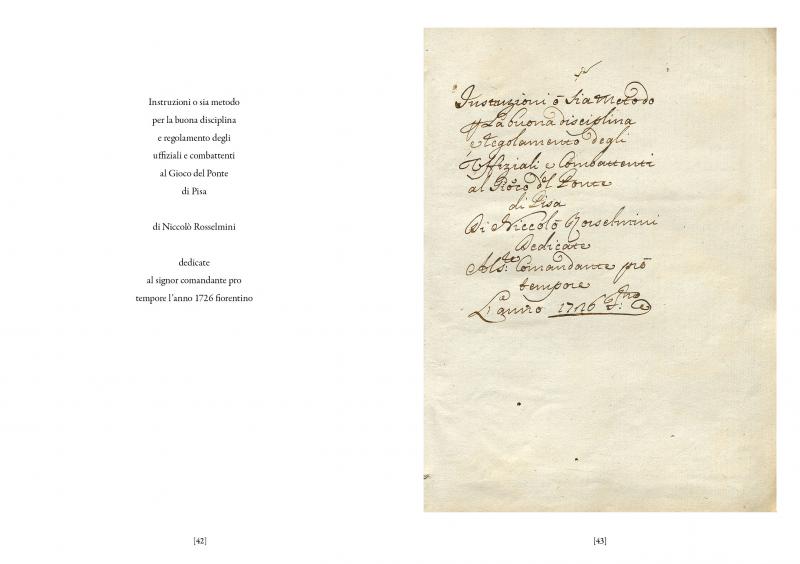 Instruzioni o sia metodo
per la buona disciplina
e regolamento degli
uffiziali e combattenti
al Gioco del Ponte
di Pisa
di Niccolò Rosselmini
dedicate
al signor comandante pro
tempore l'anno 1726 fiorentino
[42]
Instruzioni ò sia Metodo
La buona disciplina
e regolamento degli
Uffiziali e Combattenti
al Gioco del Ponte
di Pisa
Di Niccolò Rosselmini
Dedicate
Al Sig.re Comandante prò
tempore
L'anno 1726
[43]